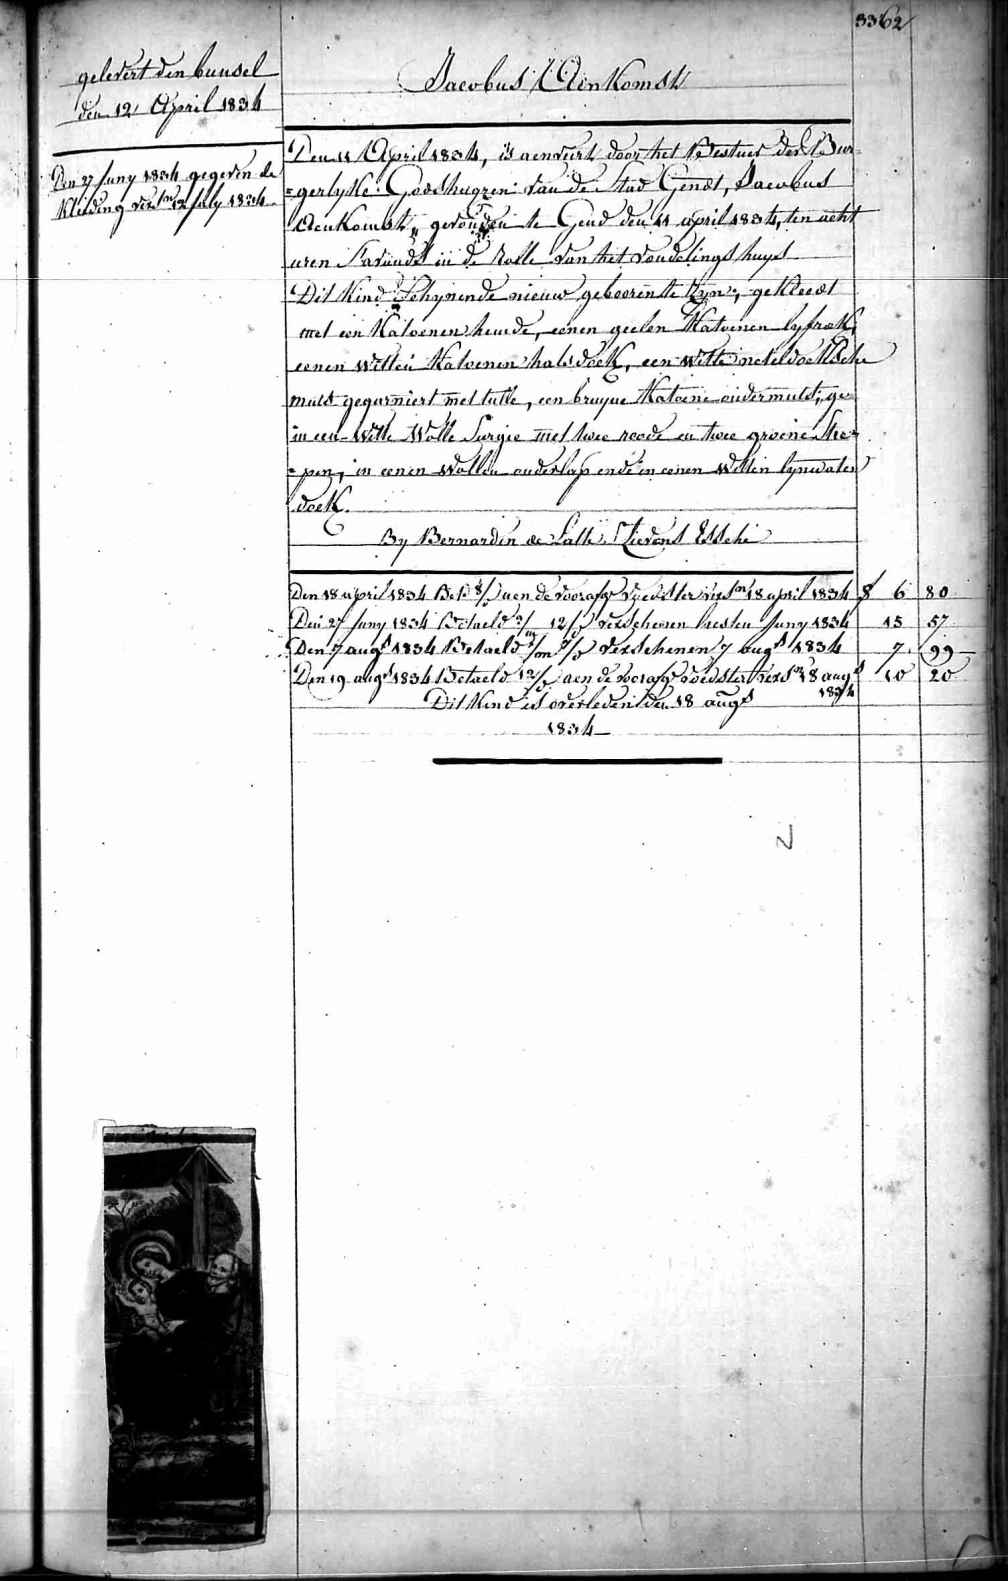 3362
gelevert den bunsel
den 12 April 1834
Den 27 Juny 1834 gegeven de
Kleeding vers.en 12 July 1834
Jacobus Aenkomst
Den 11 April 1834, is aenveirt door het Bestuer der Bur=
=gerlyke Godshuyzen van de Stad Gendt, Jacobus
Aenkomst, gevonden te Gend den 11 april 1834, ten acht
uren s'avonds in de rolle van het vondelings huys
Dit Kind Schynende nieuw gebooren te zyn, gekleedt
met een Katoenen hemde, eenen geelen Katoenen lyfrok,
eenen witten Katoenen halsdoek, een witte neteldoeksche
muts gegarniert met tulle, een bruyne Katoene ondermuts, ge=
in een witte Wolle Sargie met twee roode en twee groene Stre=
=pen, in eenen Wollen onderlap ende in eenen witten lynwaten
doek.
By Bernardin de Lathe, Lievens Essche
Den 18 april 1834 Bet. aen de vooraf. voedster vers.en 18 april 1834 f 6 80
Den 27 Juny 1834 Betaeld 12/ verschenen Juny 1834 15 57
Den 7 aug.s 1834 Betaeld verschenen 7 aug.s 1834 7 99
Den 19 aug.s 1834 Betaeld aen de vooraf. voedster vers.en 18 aug.s 1834 10 20
Dit Kind is overleden den 18 aug.s
1834